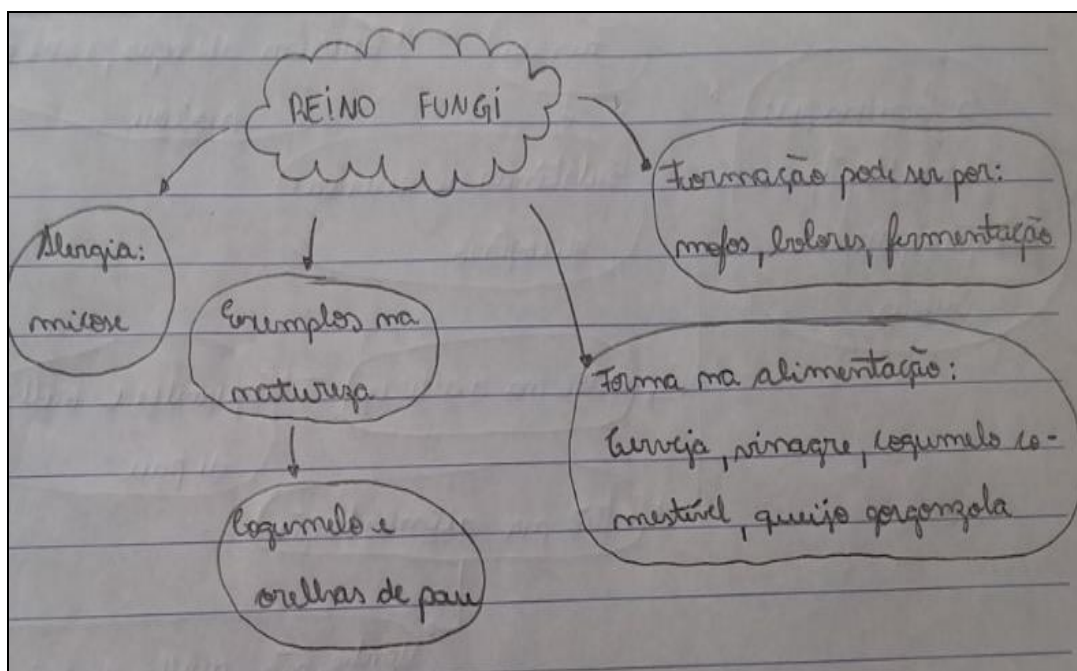 REINO FUNGI
Alergia:
micose
Exemplos na
natureza
Cogumelo e
orelhas de pau
Formação pode ser por:
mofos, bolores, fermentação
Forma na alimentação:
Cerveja, vinagre, cogumelo co-
mestível, queijo gorgonzola